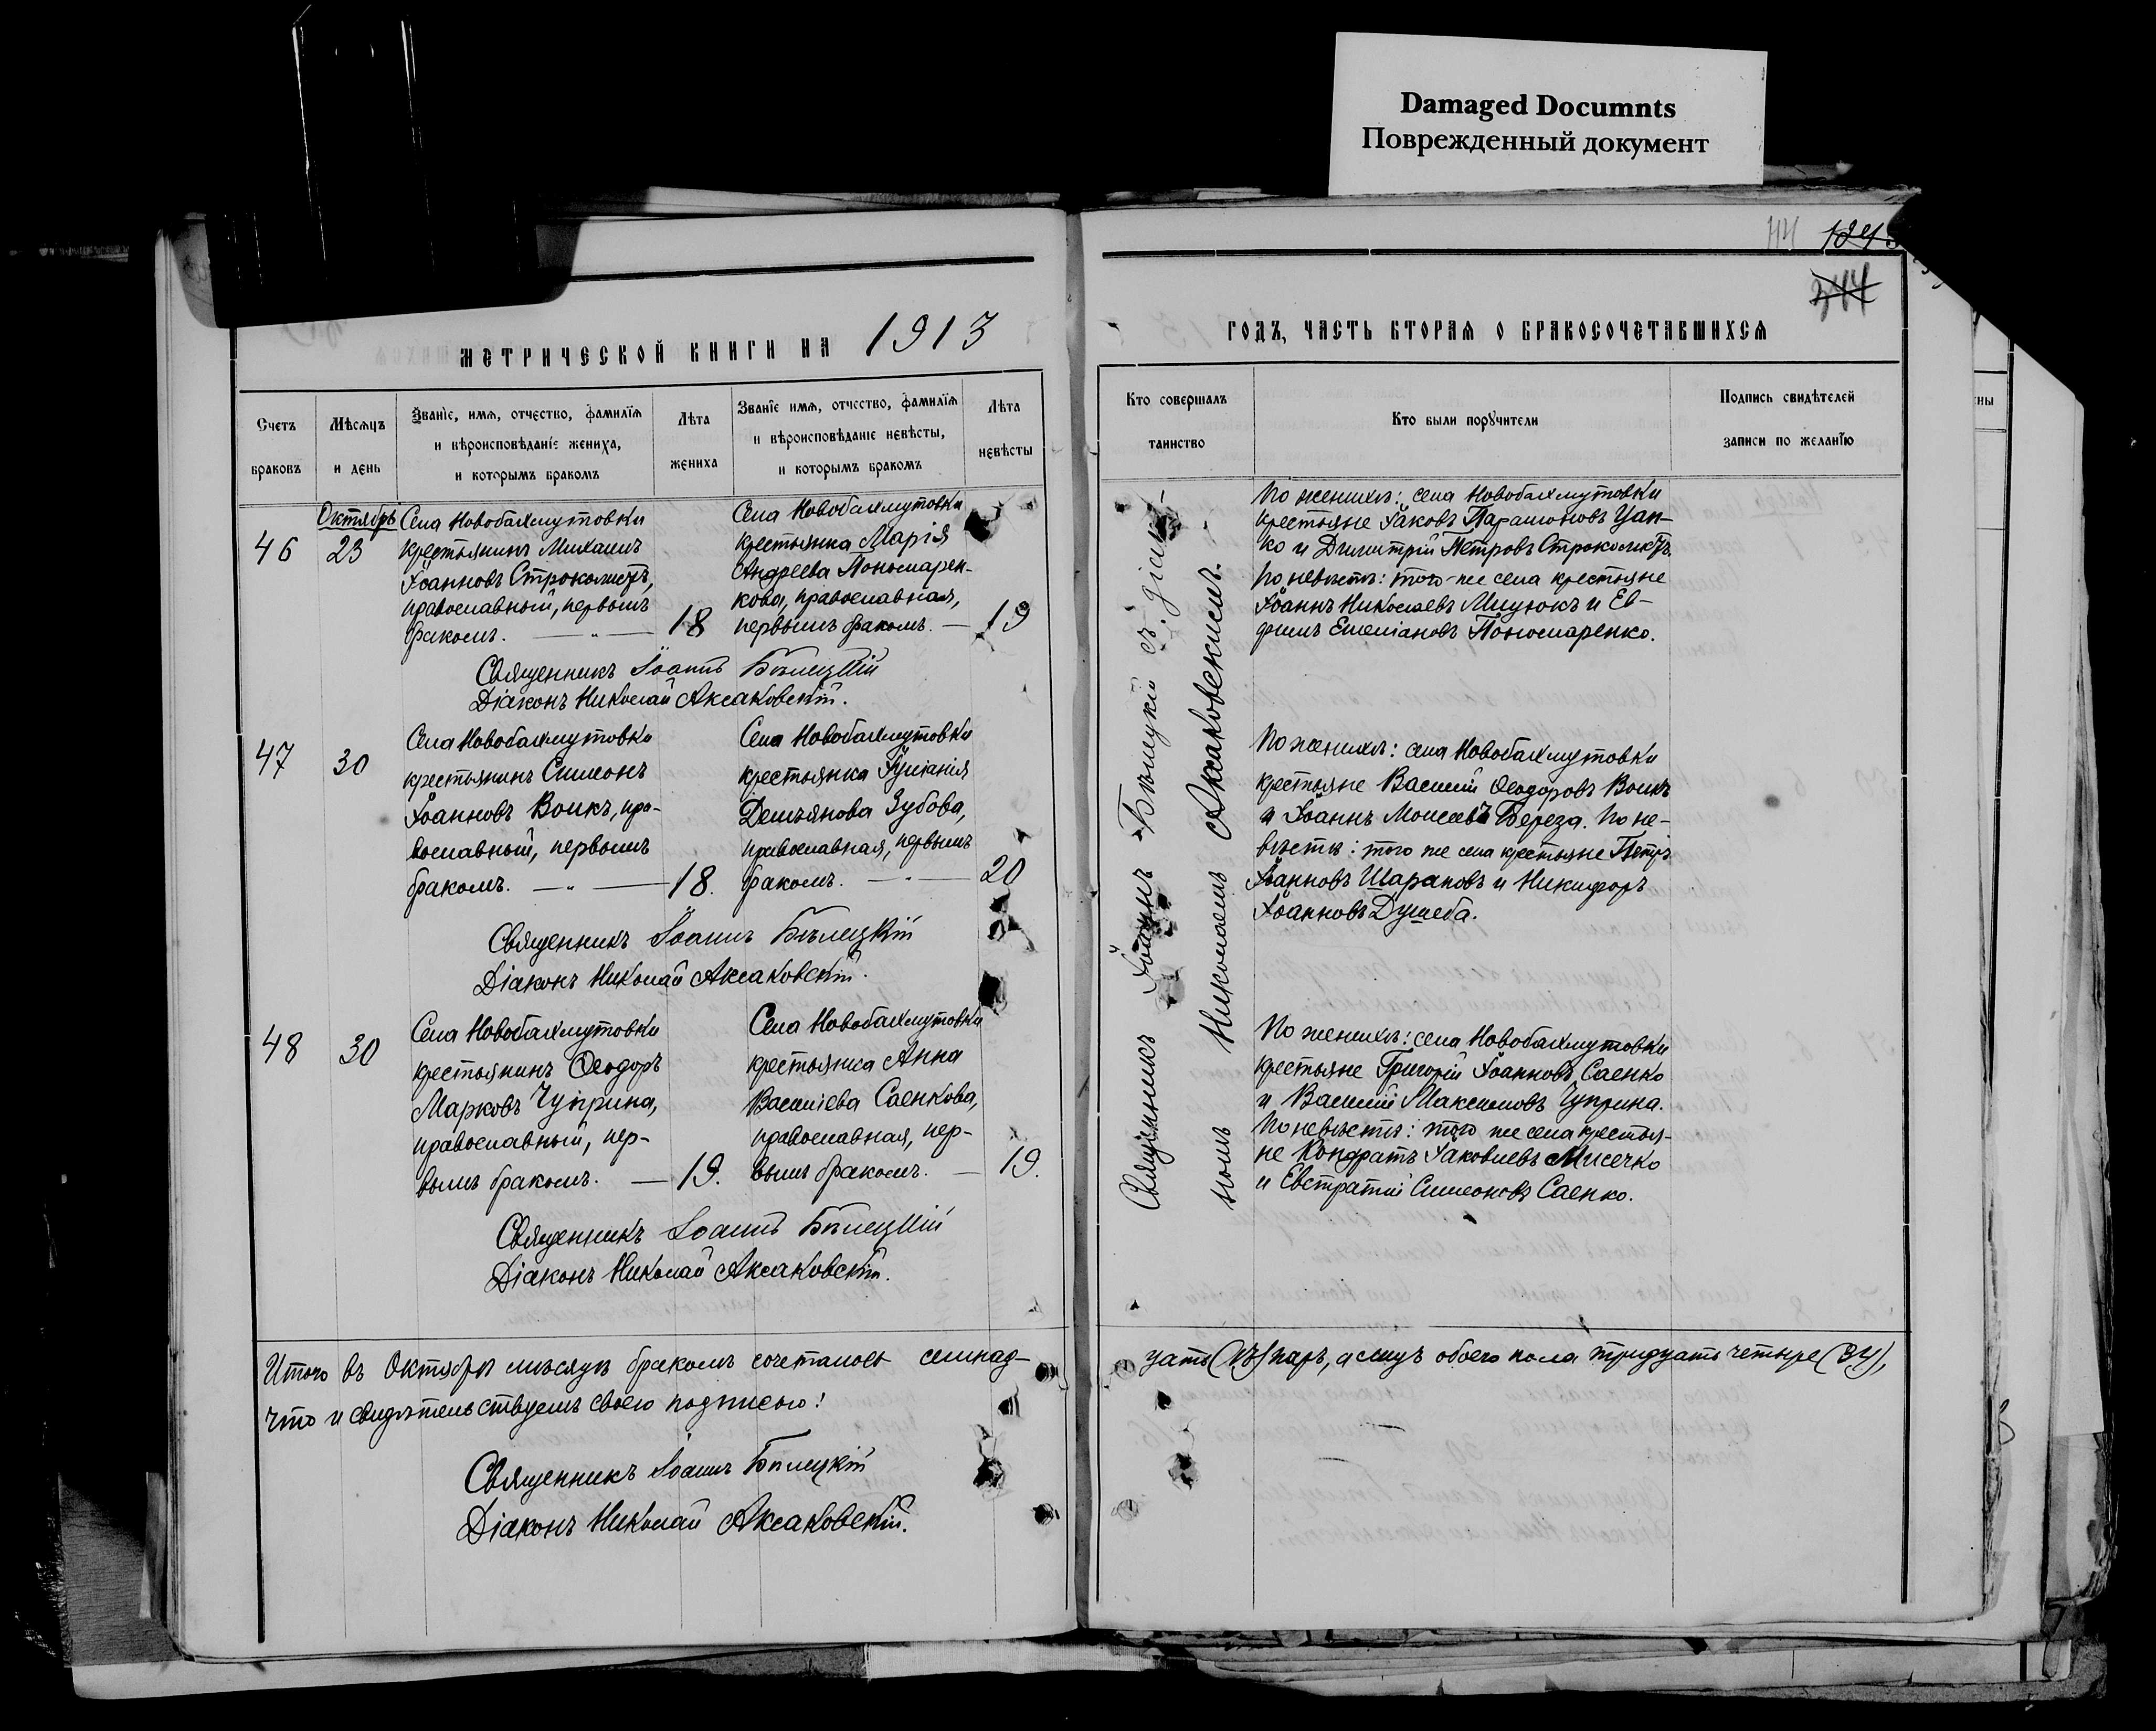 Damaged Documnts
Поврежденный документ
144 124
344
МЕТРИЧЕСКОЙ КНИГИ НА 1913
Счетъ браковъ
Мѣсяцъ и день
Званіе, имя, отчество, фамилія
и вѣроисповѣданіе жениха,
и которымъ бракомъ
Лѣта жениха
Званіе имя, отчество, фамилія
и вѣроисповѣданіе невѣсты,
и которымъ бракомъ
Лѣта невѣсты
Октябрь
46
23
Села Новобахмутовки
крестьянинъ Михаилъ
Іоанновъ Строколистъ,
православный, первымъ
бракомъ. — „ — 18
Села Новобахмутовки
крестьянка Марія
Андреева Пономарен-
кова, православная,
первымъ бракомъ. — 19
Священникъ Іоаннъ Бѣлецкій
Діаконъ Николай Аксаковскій.
47
30
Села Новобахмутовки
крестьянинъ Симеонъ
Іоанновъ Волкъ, пра-
вославный, первымъ
бракомъ. — „ — 18.
Села Новобахмутовки
крестьянка Іуліанія
Демьянова Зубова,
православная, первымъ
бракомъ. — „ — 20
Священникъ Іоаннъ Бѣлецкій
Діаконъ Николай Аксаковскій.
48
30
Села Новобахмутовки
крестьянинъ Ѳеодоръ
Марковъ Чуприна,
православный, пер-
вымъ бракомъ. — 19.
Села Новобахмутовки
крестьянка Анна
Василіева Саенкова,
православная, пер-
вымъ бракомъ. — 19.
Священникъ Іоаннъ Бѣлецкій
Діаконъ Николай Аксаковскій.
Итого въ Октябрѣ мѣсяцѣ бракомъ сочеталось семнад-
что и свидѣтельствуемъ своею подписью:
Священникъ Іоаннъ Бѣлецкій
Діаконъ Николай Аксаковскій.
ГОДЪ, ЧАСТЬ ВТОРАЯ О БРАКОСОЧЕТАВШИХСЯ
Кто совершалъ
таинство
Кто были поручители
Подпись свидѣтелей
записи по желанію
Священникъ Іоаннъ Бѣлецкій съ діако-
номъ Николаемъ Аксаковскимъ.
По женихѣ: села Новобахмутовки
крестьяне Іаковъ Парамоновъ Цап-
ко и Димитрій Петровъ Строколистъ.
По невѣстѣ: того-же села крестьяне
Іоаннъ Николаевъ Мицюкъ и Ев-
фимъ Емеліановъ Пономаренко.
По женихѣ: села Новобахмутовки
крестьяне Василій Ѳеодоровъ Волкъ
и Іоаннъ Моисеевъ Береза. По не-
вѣстѣ: того же села крестьяне Петръ
Іоанновъ Шараповъ и Никифоръ
Іоанновъ Душеба.
По женихѣ: села Новобахмутовки
крестьяне Григорій Іоанновъ Саенко
и Василій Максимовъ Чуприна.
По невѣстѣ: того же села крестья-
не Кондратъ Іаковлевъ Мисечко
и Евстратій Симеоновъ Саенко.
цать (17) паръ, а лицъ обоего пола тридцать четыре (34),